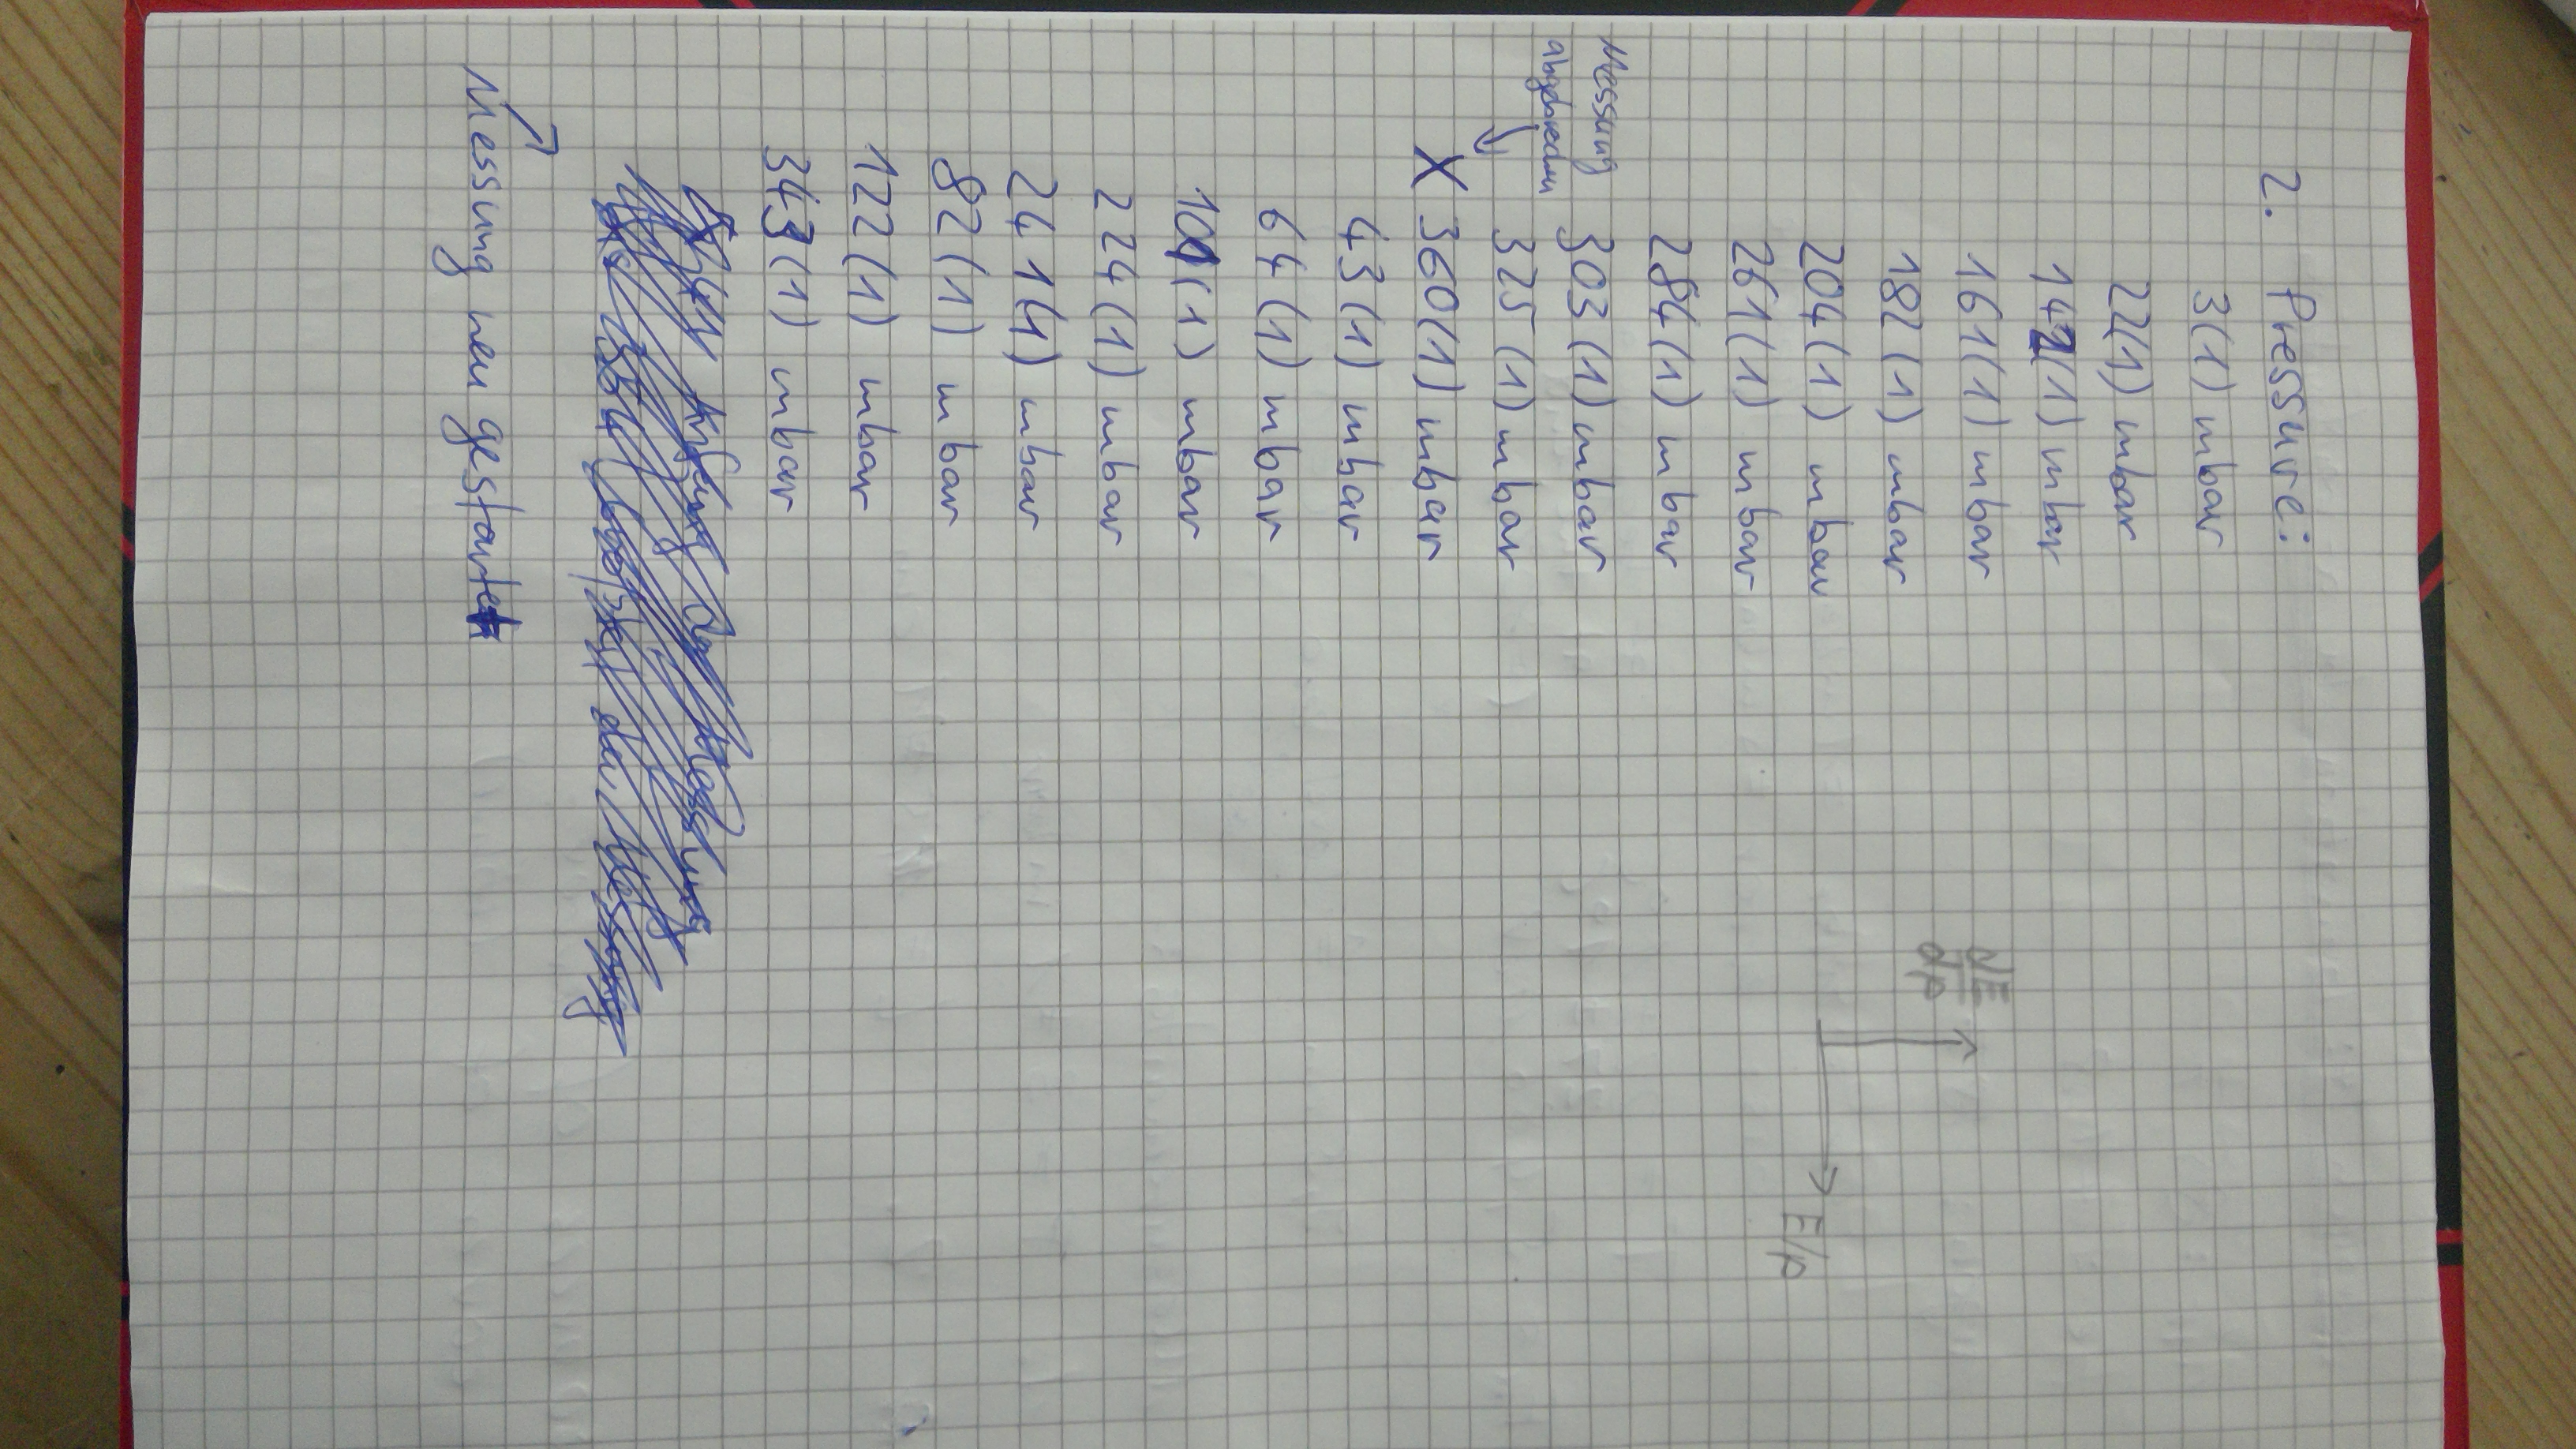 2. Pressure:
3(1) mbar
22(1) mbar
142(1) mbar
161(1) mbar
182(1) mbar
204(1) mbar
261(1) mbar
284(1) mbar
Messung
abgebrochen
303(1) mbar
325(1) mbar
X 360(1) mbar
43(1) mbar
64(1) mbar
101(1) mbar
224(1) mbar
241(1) mbar
82(1) mbar
122(1) mbar
343(1) mbar
Messung neu gestartet
dE
dp
E/p